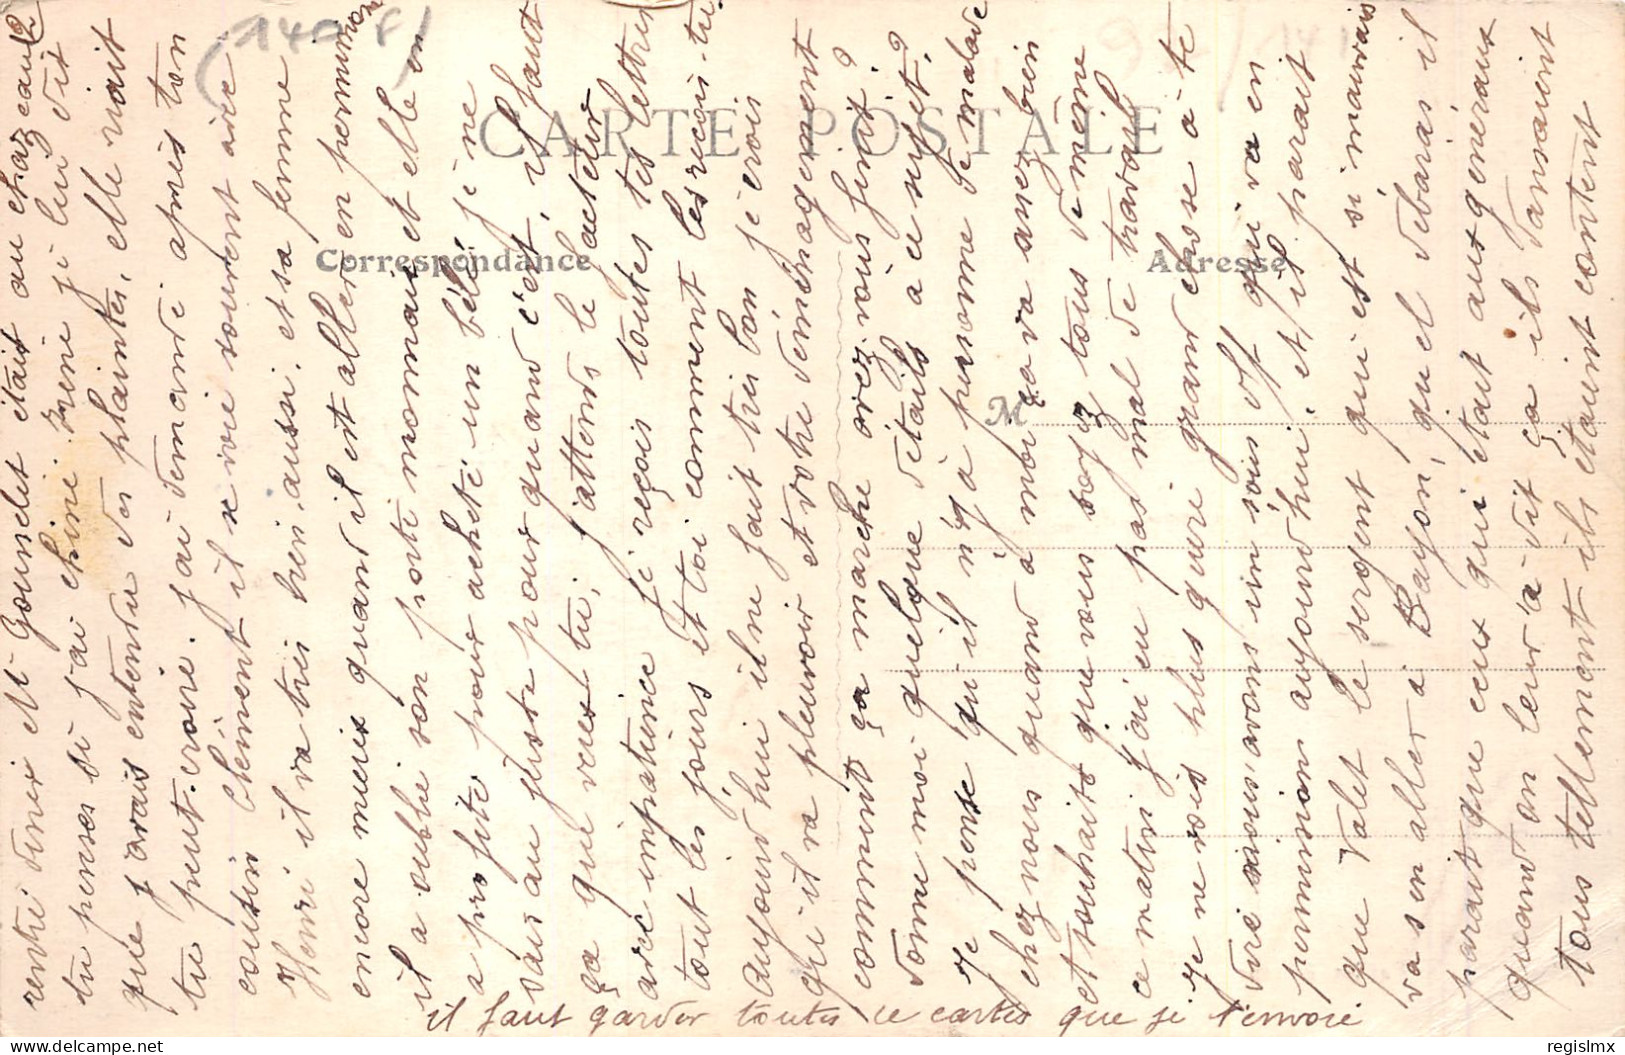 (140 F)
CARTE POSTALE
Correspondance
Adresse
M
rentré diner et M Gouselet était au chaz eaul2
tu penses si j'ai chiné. Irène je lui dit
que j'avais entendu des plaintes, elle riait
tu peut croire. j'ai demandé après ton
cousin Clément il se ivre souvent avec
Henri il va très bien, aussi, et sa femme
encore mieux quand il est aller en permission
il a oublié son porte monnaie et elle en
a profité pour acheté un bébé je ne
sais au juste pour quand c'est, il faut
ça que veux tu, j'attends le facteur
avec impatience je reçois toutes tes lettres
tout les jours et toi comment les reçois-tu
aujourd'hui il ne fait très bon je crois
qu'il va pleuvoir et votre déménagement
comment ça marche avez vous finit?
donne moi quelque détails à ce sujet?
Je pense qu'il n'y a personne de malade
chez nous quand à moi ça va assez bien
et souhaite que vous soyez tous de même
ce matin j'ai eu pas mal de travail
je ne vois plus guère grand chose à te
dire nous avons un sous off qui va en
permission aujourd'hui, et il parait
que Valet le sergent qui est si mauvais
va s'en aller à Bayon, quel débaras il
parait que ceux qui était aux generaux
quand on leur à dit ça ils dansaient
tous tellement ils étaient content
il faut garder toutes ce cartes que je t'envoie
regislmx
delcampe.net